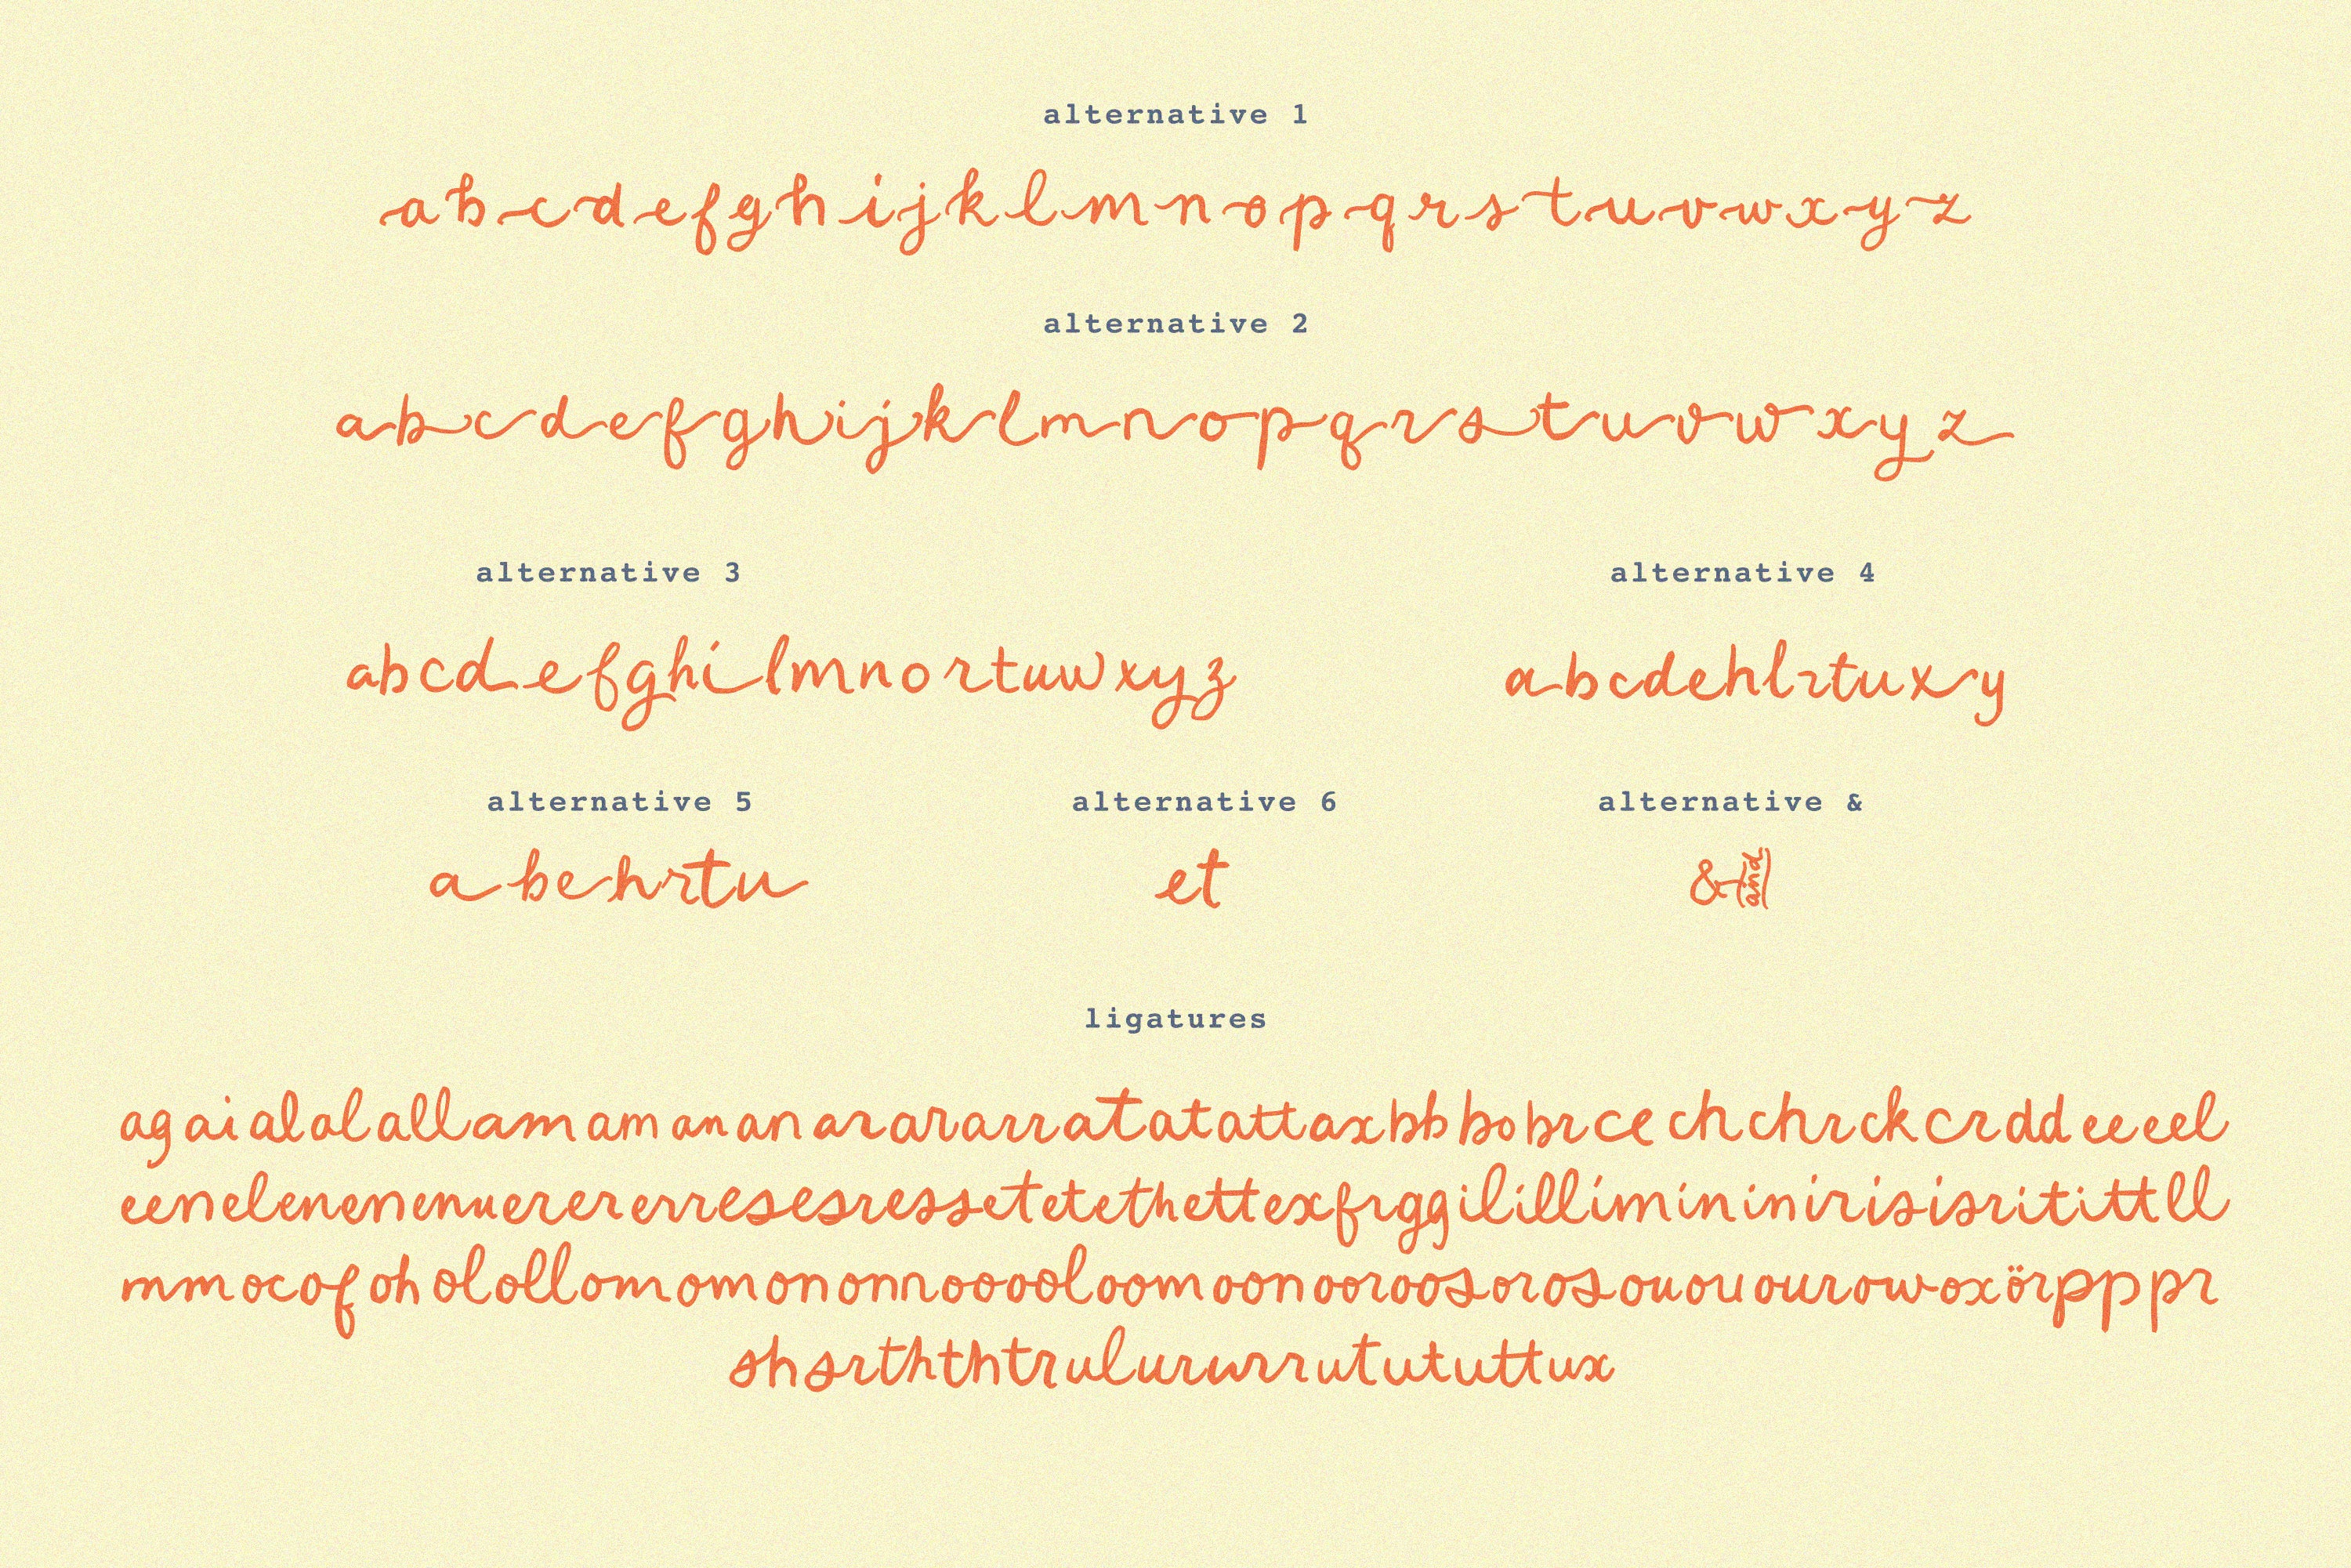 alternative 1
abcdefghijklmnopqrstuvwxyz
alternative 2
abcdefghijklmnopqrstuvwxyz
alternative 3
abcdefghilmnortuwxyz
alternative 4
abcdehlrtuxy
alternative 5
abehrtu
alternative 6
et
alternative &
&and
ligatures
agaialalallamamananarararratatattaxbbbobrcechchrckcrddeeeel
eenelenenenuerererrresesressetetethettexfrggilillimininirisisrititttll
mmocofoholollomomononnooooloomoonooroosorosououourowoxörppppr
shsrththtrulururrutututtux